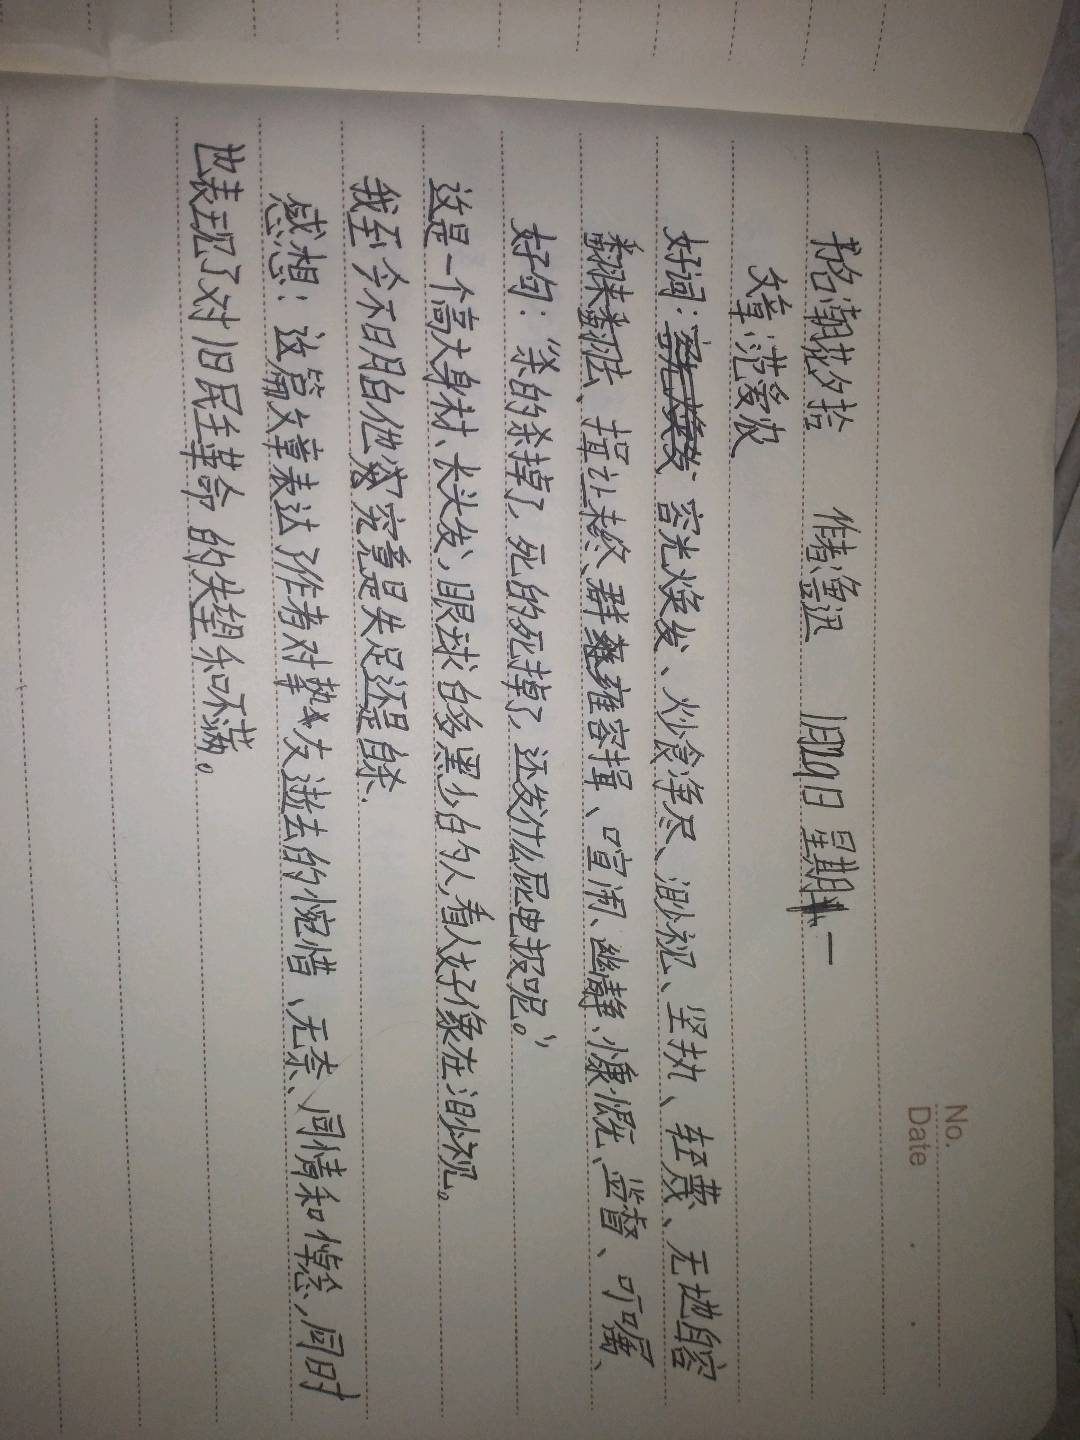 No.
Date
书名:朝花夕拾 作者:鲁迅 1月29日 星期一
文章:范爱农
好词: 容光焕发、炒食净尽、渺视、坚执、轻蔑、无地自容
翻来翻去、揖让未终、群雍雍容揖、喧闹、幽静、慷慨、监督、叮嘱、
好句:“杀的杀掉了,死的死掉了,还发什么屁电报呢。”
这是一个高大身材、长头发,眼球白多黑少的人,看人好像在渺视。
我至今不明白他究竟是失足还是自杀.
感想:这篇文章表达了作者对挚友逝去的惋惜、无奈、同情和悼念,同时
也表现了对旧民主革命的失望和不满。